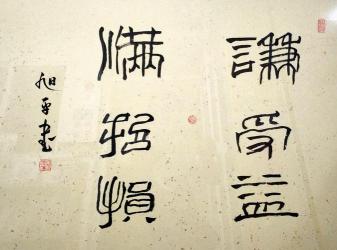 謙受益
滿招損
旭平書